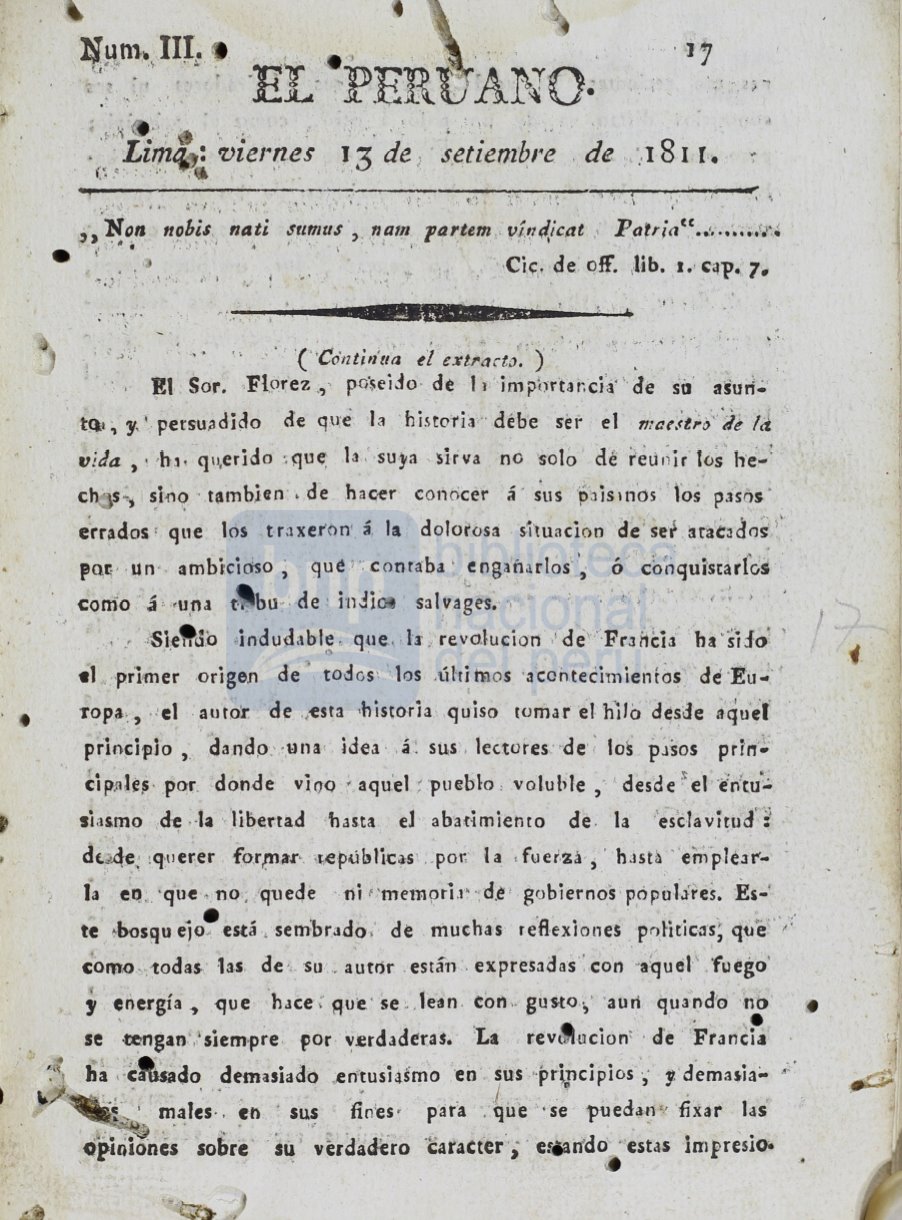 Num. III. 17
EL PERUANO.
Lima: viernes 13 de setiembre de 1811.
„Non nobis nati sumus, nam partem víndicat Patria“..........
Cic. de off. lib. 1. cap. 7.
( Continua el extracto. )
El Sor. Florez, poseido de la importancia de su asun-
to, y persuadido de que la historia debe ser el maestro de la
vida, ha querido que la suya sirva no solo de reunir los he-
chos, sino tambien de hacer conocer á sus paisanos los pasos
errados que los traxeron á la dolorosa situacion de ser atacados
por un ambicioso, que contaba engañarlos, ó conquistarlos
como á una tribu de indios salvages.
Siendo indudable que la revolucion de Francia ha sido
el primer origen de todos los últimos acontecimientos de Eu-
ropa, el autor de esta historia quiso tomar el hilo desde aquel
principio, dando una idea á sus lectores de los pasos prin-
cipales por donde vino aquel pueblo voluble, desde el entu-
siasmo de la libertad hasta el abatimiento de la esclavitud:
desde querer formar repúblicas por la fuerza, hasta emplear-
la en que no quede ni memoria de gobiernos populares. Es-
te bosquejo está sembrado de muchas reflexiones politicas, que
como todas las de su autor están expresadas con aquel fuego
y energía, que hace que se lean con gusto, aun quando no
se tengan siempre por verdaderas. La revolucion de Francia
ha causado demasiado entusiasmo en sus principios, y demasia-
dos males en sus fines para que se puedan fixar las
opiniones sobre su verdadero caracter, estando estas impresio-
biblioteca
nacional
del perú
bnp
17